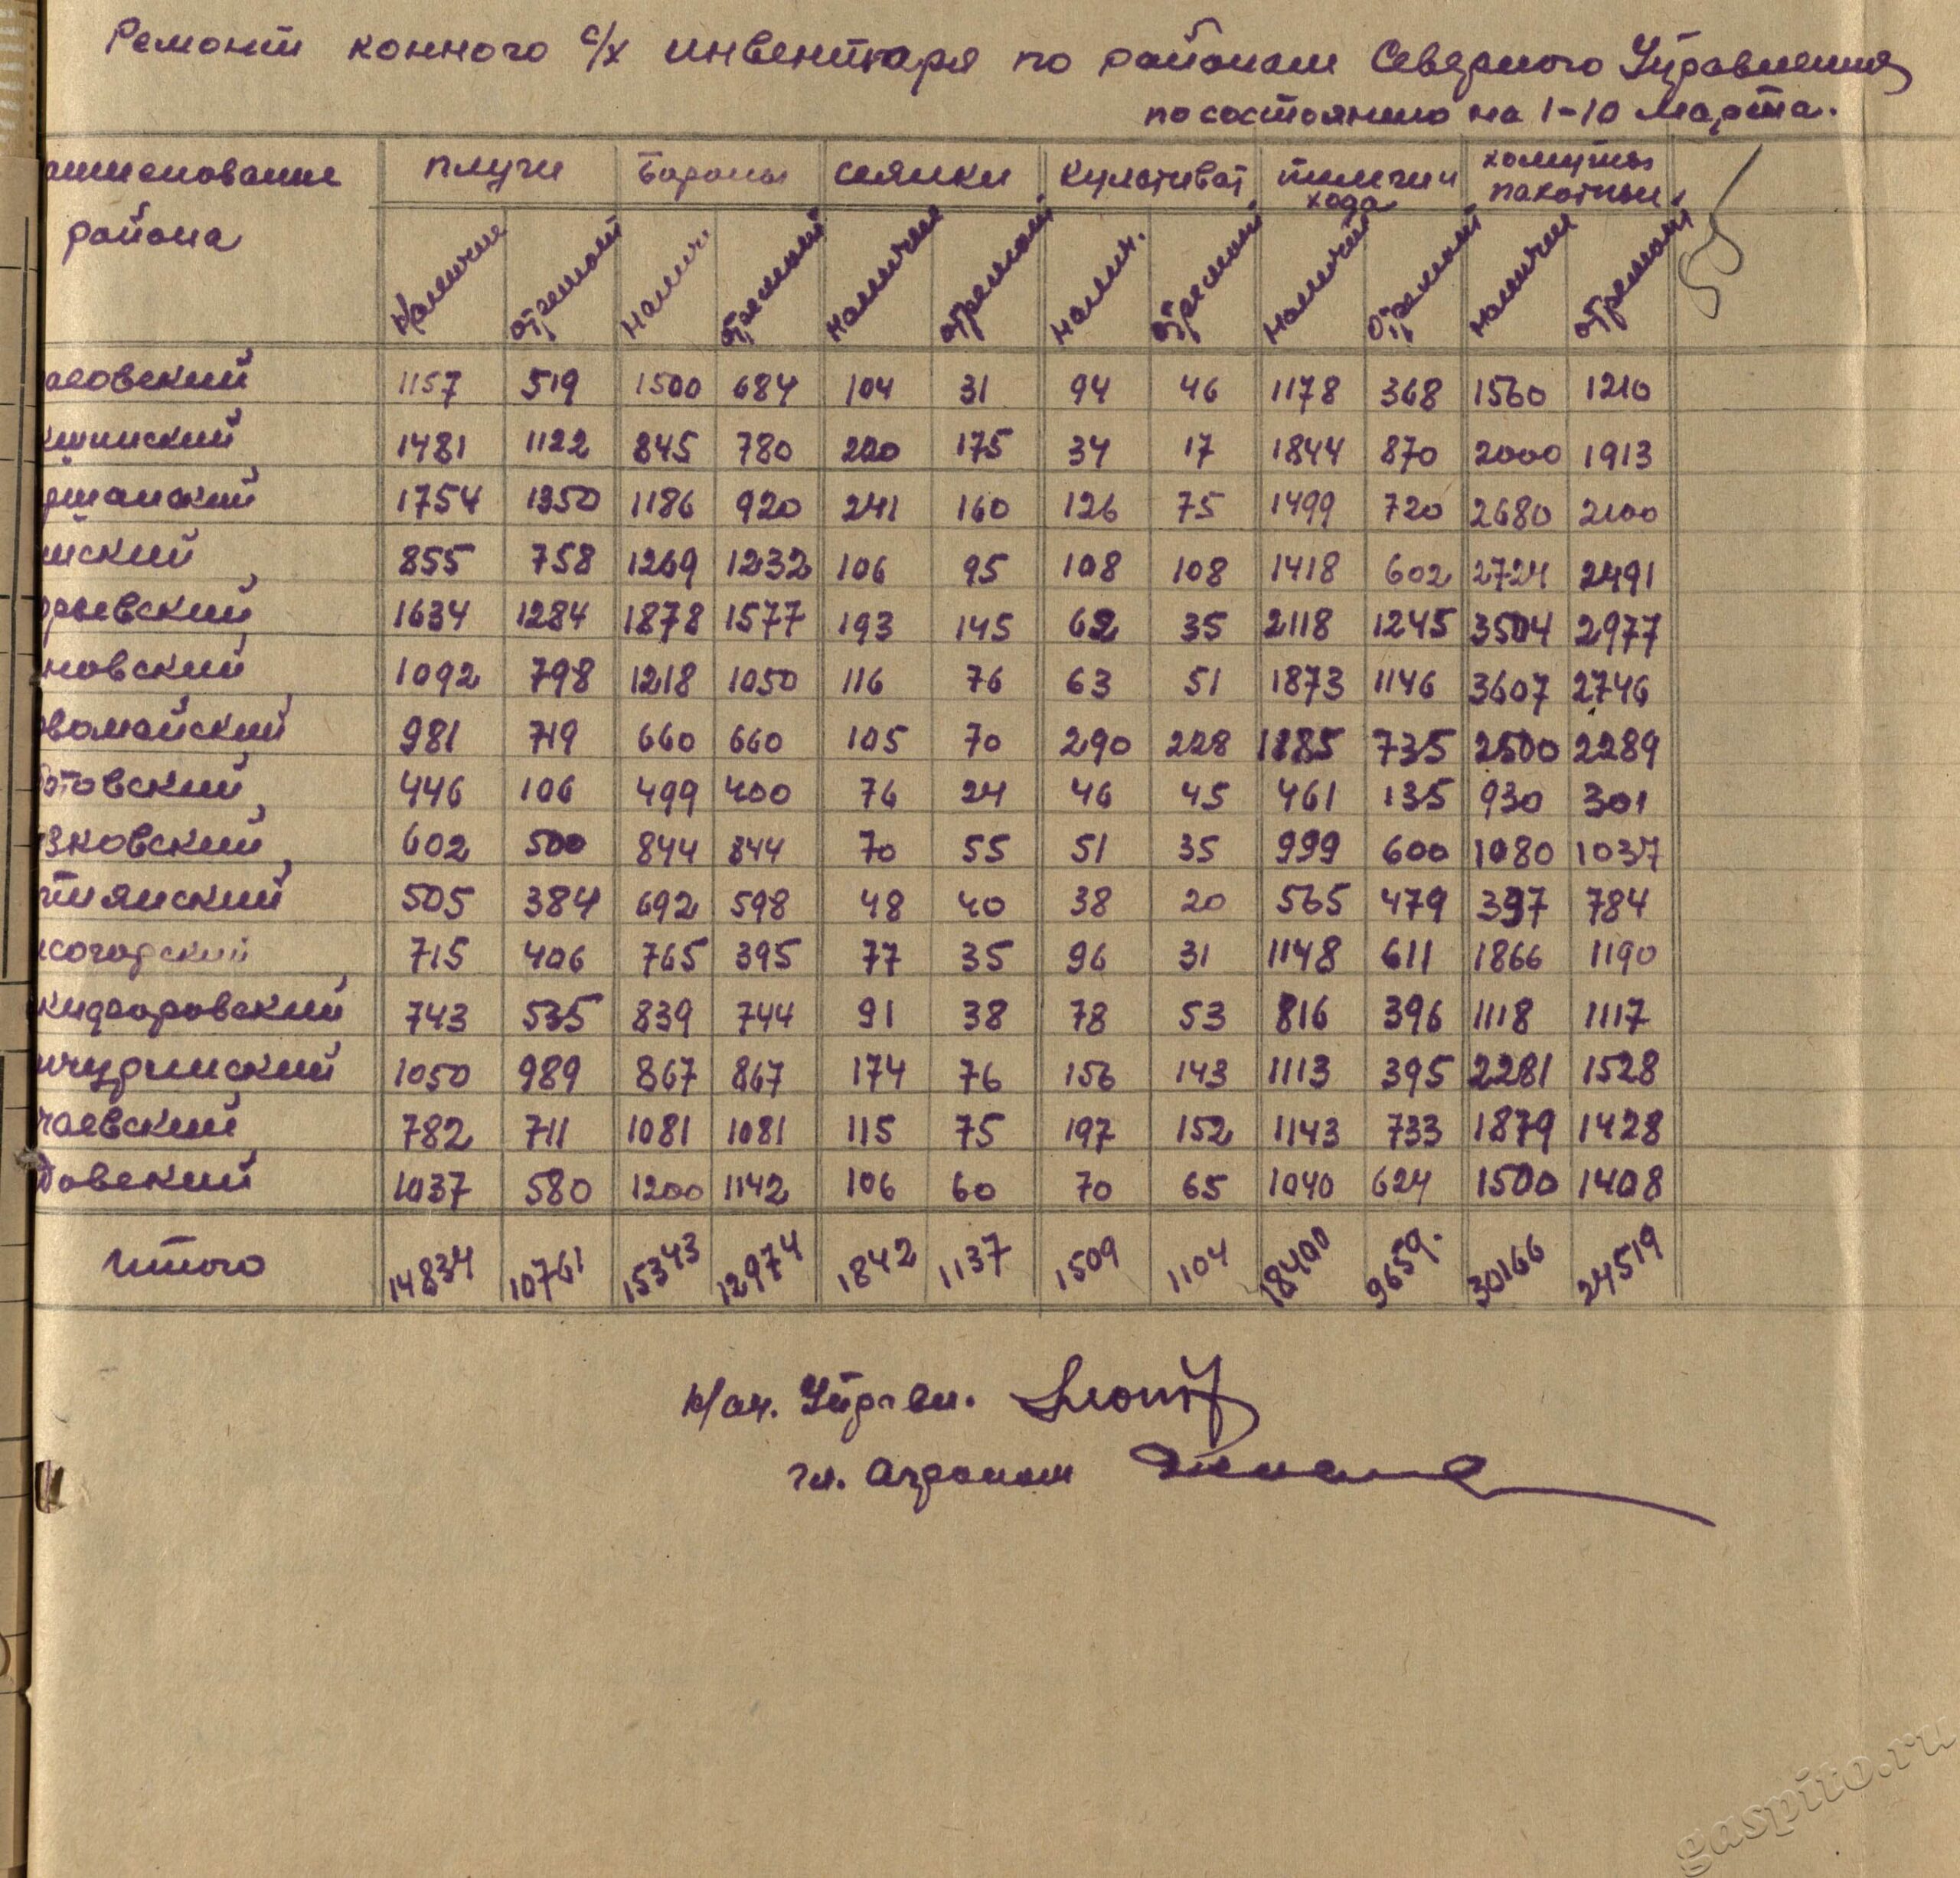 Ремонт конного с/х инвентаря по районам Северного Управления
по состоянию на 1-10 Марта.
аименование района плуги Бороны сеялки Культиват. телеги и хода хомуты пахотные
Наличие отремонт Налич. отремонт Наличие отремонт Налич. отремонт Наличие отремонт Наличие отремонт
аловский 1157 519 1500 684 104 31 94 46 1178 368 1560 1210
кшинский 1481 1122 845 780 220 175 34 17 1844 870 2000 1913
ршанский 1754 1350 1186 920 241 160 126 75 1499 720 2680 2100
йский 855 758 1269 1232 106 95 108 108 1418 602 2724 2491
рьевский 1634 1284 1878 1577 193 145 62 35 2118 1245 3504 2977
новский 1092 798 1218 1050 116 76 63 51 1873 1146 3607 2746
вомайский 981 719 660 660 105 70 290 228 1185 735 2500 2289
ботовский 446 106 499 400 76 24 46 45 461 135 930 301
зковский 602 500 844 844 70 55 51 35 999 600 1080 1037
стиянский 505 384 692 598 48 40 38 20 565 479 397 784
согорский 715 406 765 395 77 35 96 31 1148 611 1866 1190
кифоровский 743 535 839 744 91 38 78 53 816 396 1118 1117
ичуринский 1050 989 867 867 174 76 156 143 1113 395 2281 1528
чаевский 782 711 1081 1081 115 75 197 152 1143 733 1879 1428
довский 1037 580 1200 1142 106 60 70 65 1040 624 1500 1408
Итого 14834 10761 15343 12974 1842 1137 1509 1104 18400 9659. 30166 24519
Нач. Управл.
гл. Агроном
gaspito.ru